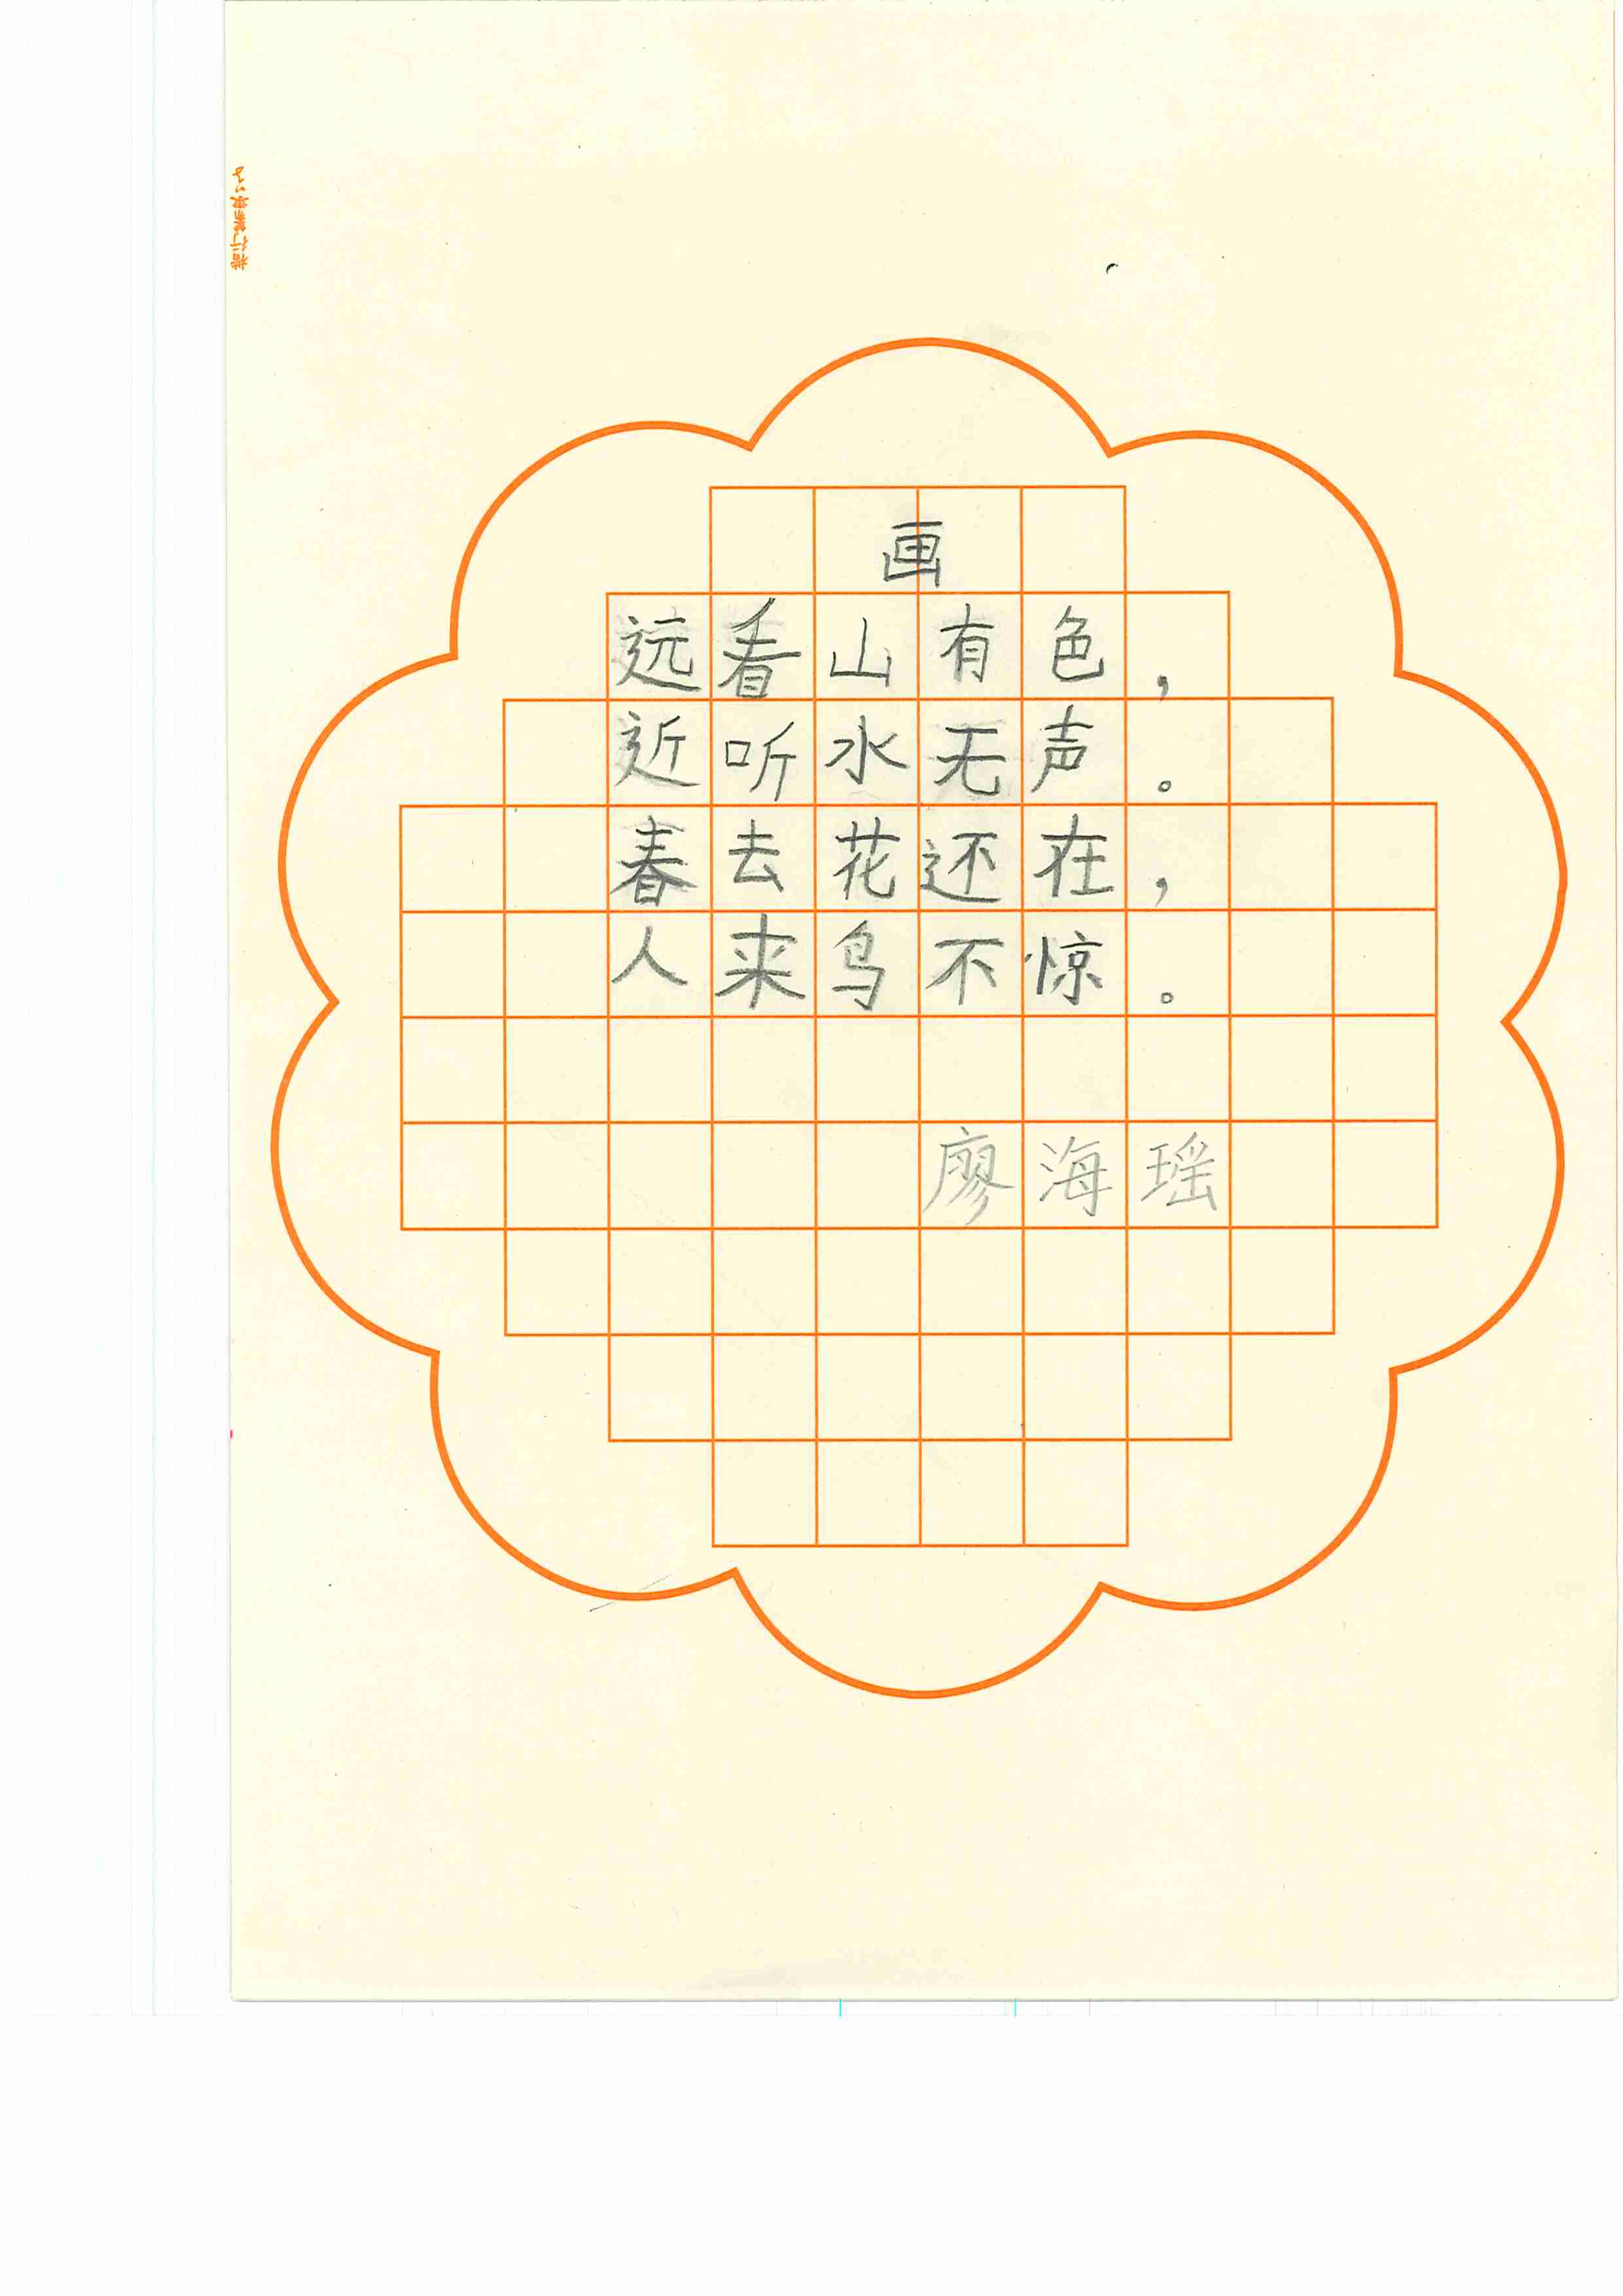 画
远看山有色，
近听水无声。
春去花还在，
人来鸟不惊。
廖海瑶